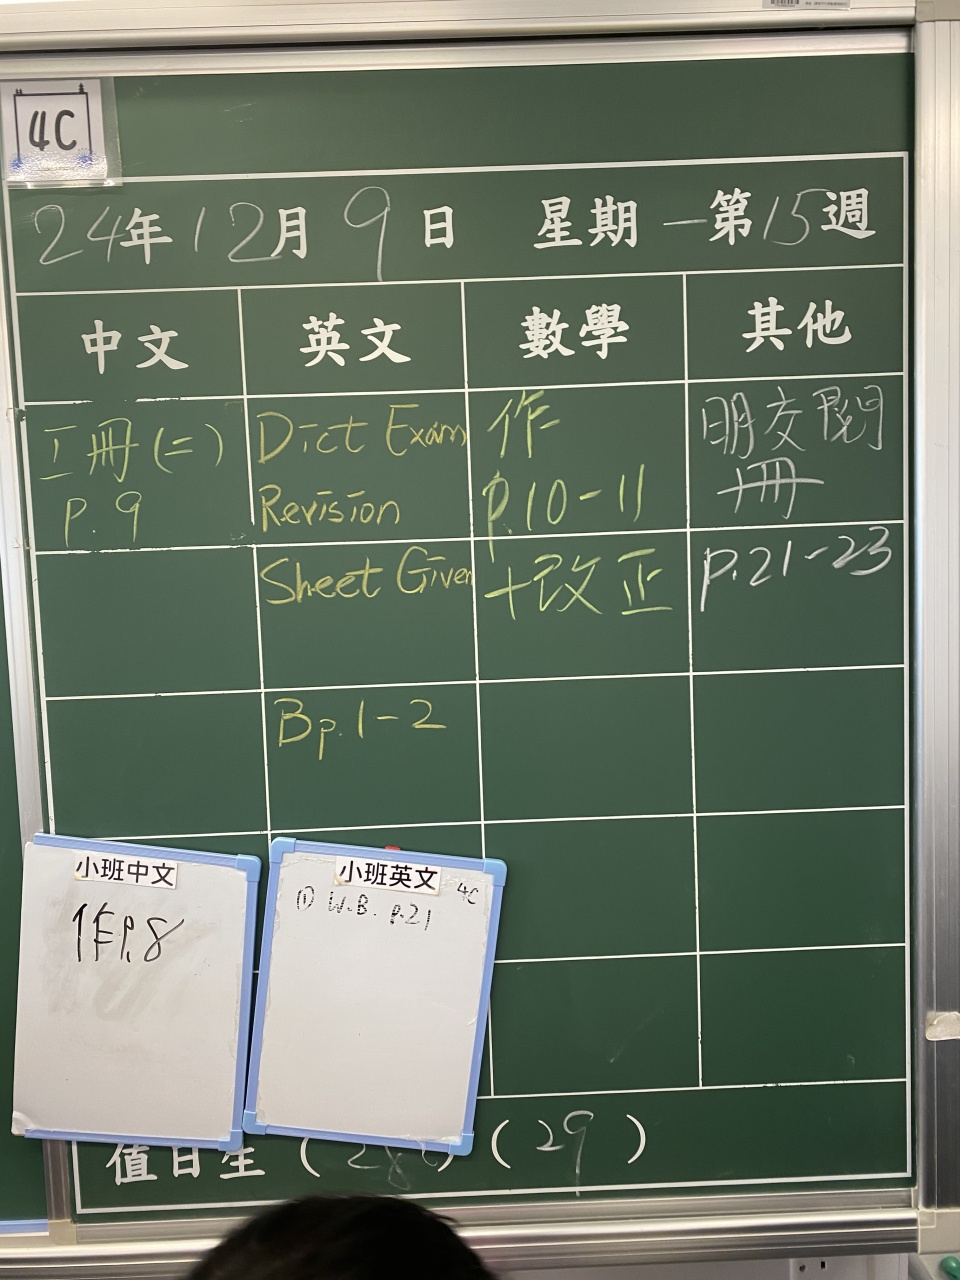 4C
24年12月9日 星期一 第15週
中文 英文 數學 其他
工冊(二)
p.9
Dict Exam
Revision
Sheet Given
Bp.1-2
作
p.10-11
+改正
明交閱
冊
p.21-23
小班中文
作p.8
小班英文
4C
① W.B. p.21
值日生 (28) (29)